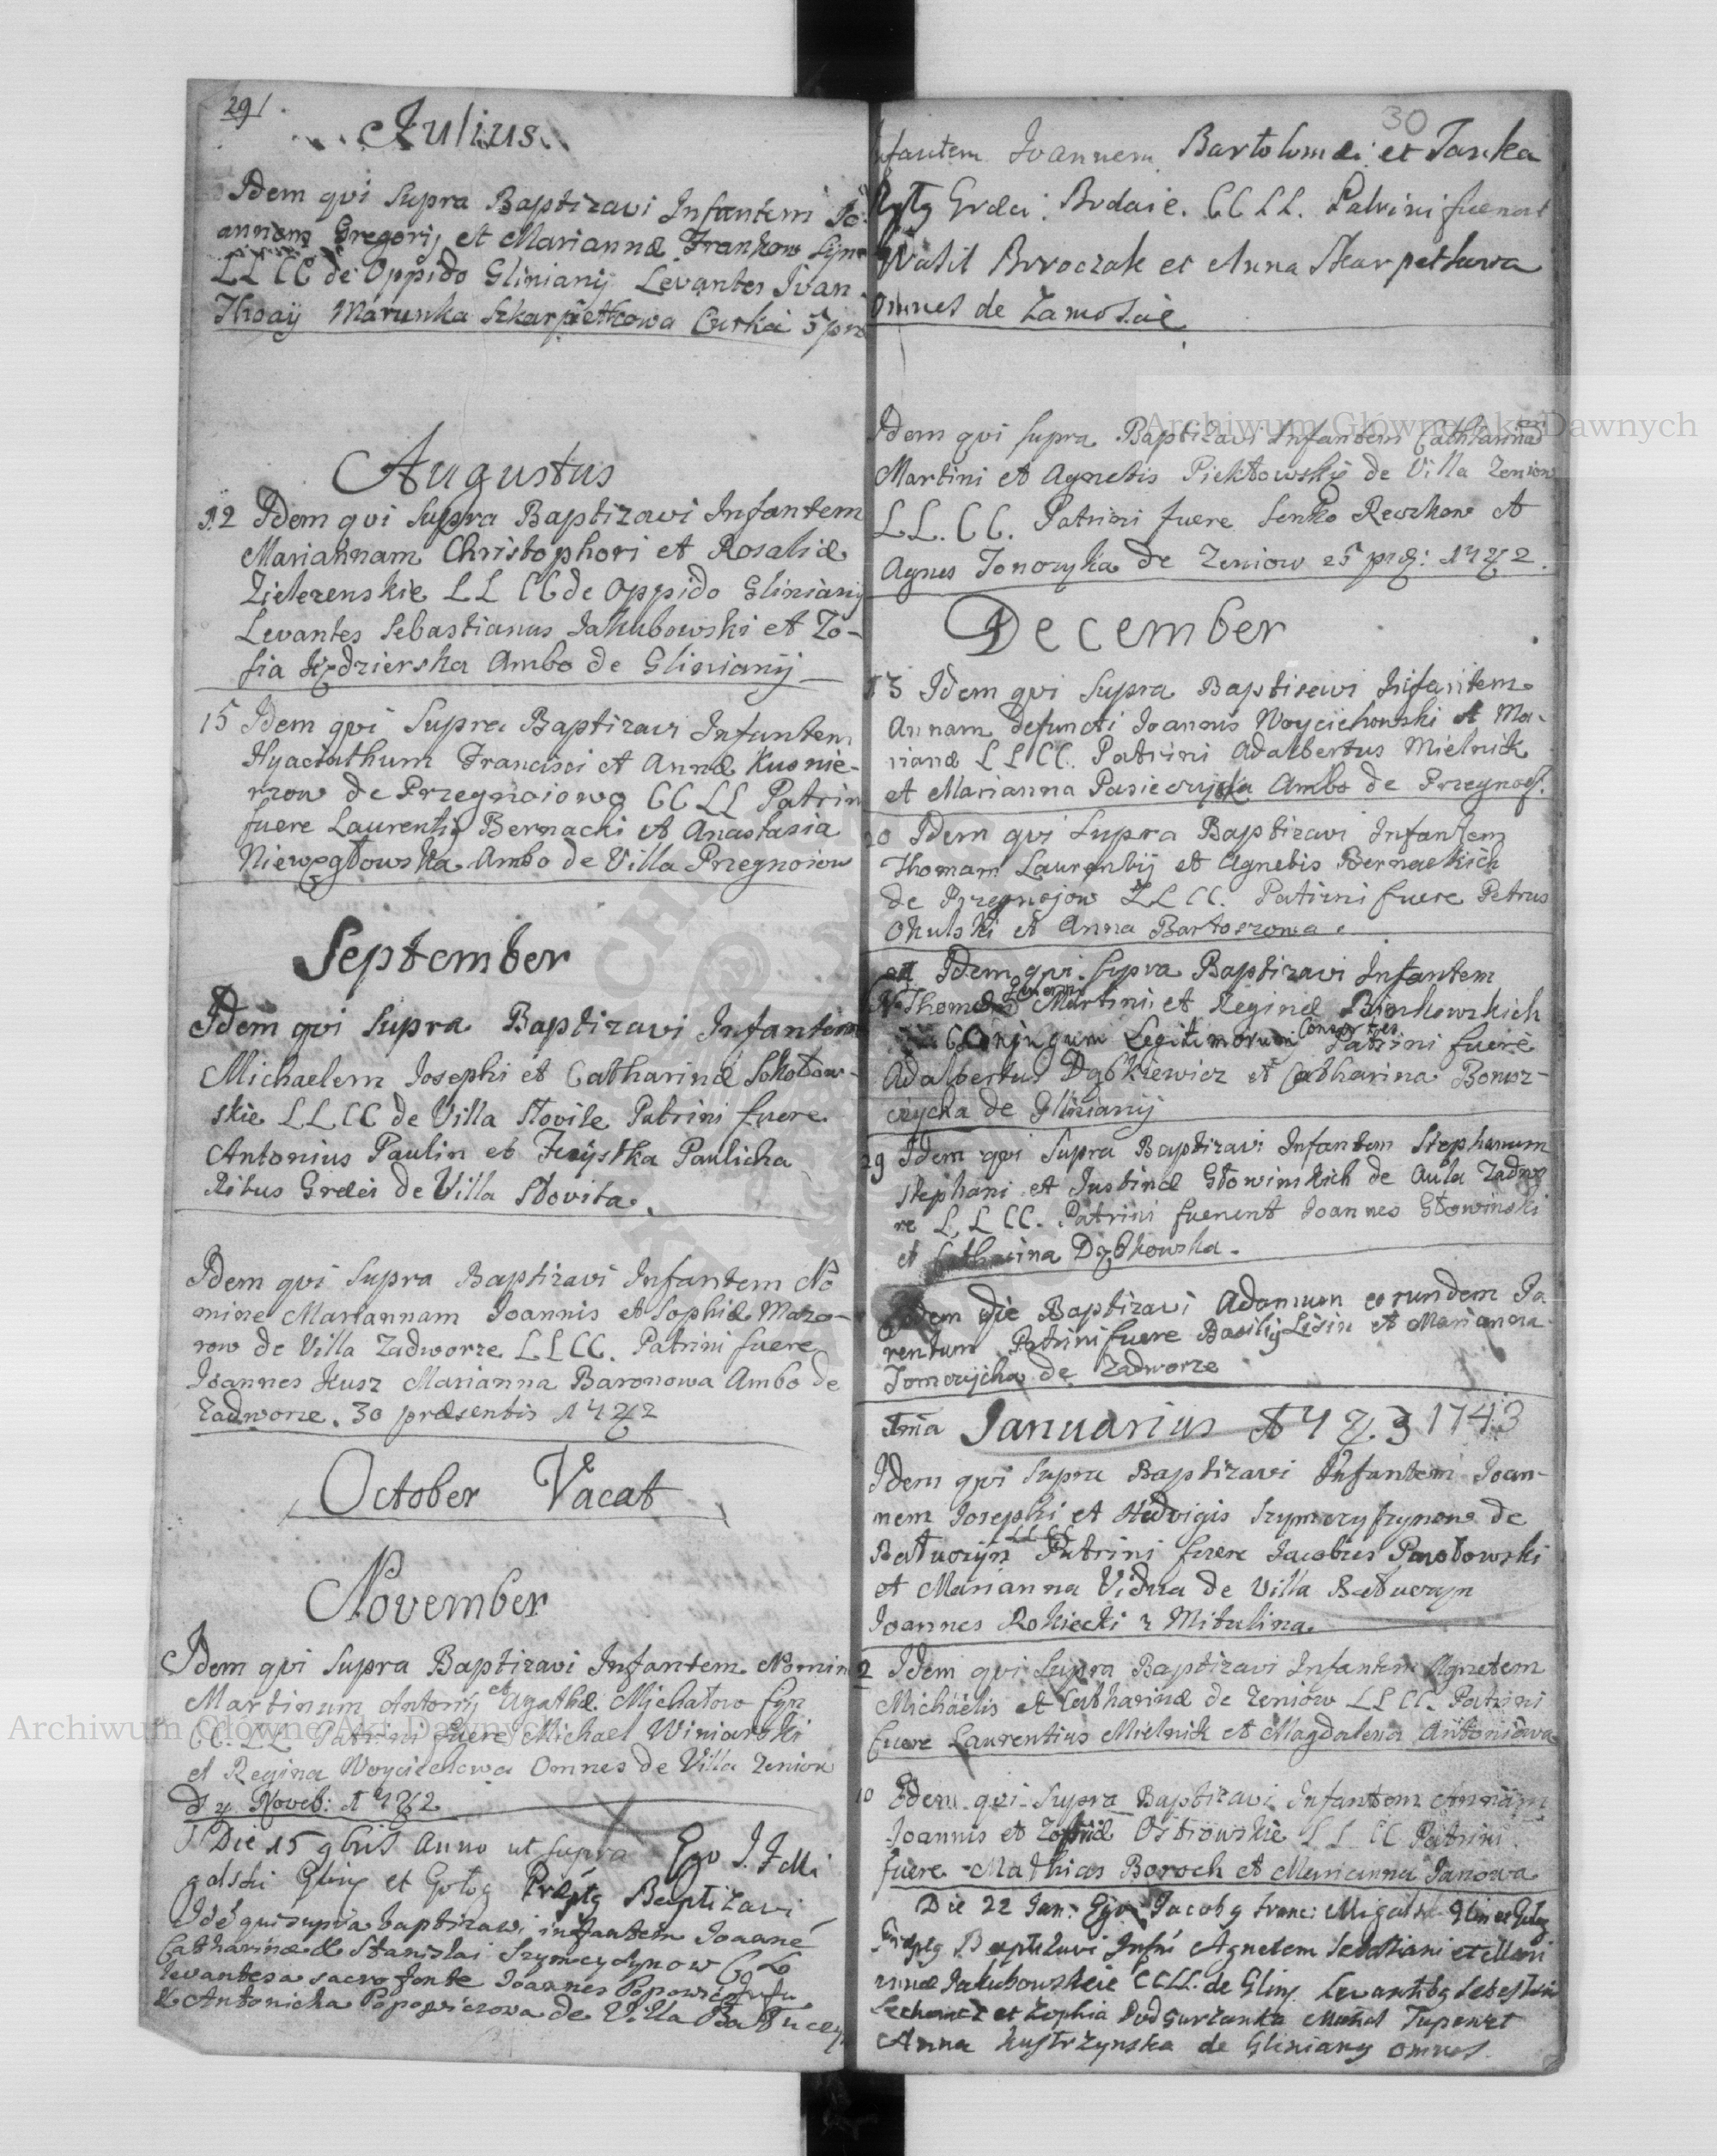 291.
Julius
Idem qvi Supra Baptizavi Infantem Jo-
annem Gregorij et Mariannæ Frankow
LLCC de Oppido Glinianij Levantes Ivan
Marunka Szkarpietkowa
Augustus
12 Idem qvi Supra Baptizavi Infantem
Mariannam Christophori et Rosaliæ
Zielezenskie LL CC de Oppido Glinianij
Levantes Sebastianus Jakubowski et Zo-
fia Kędzierska Ambo de Glinianij
15 Idem qvi Supra Baptizavi Infantem
Hyacinthum Francisci et Annæ Kusnie-
rzow de Przegnoiowa CC LL Patrin
fuere Laurentij Bernacki et Anastasia
Niewęgłowska Ambo de Villa Przegnoiow
September
Idem qvi Supra Baptizavi Infantem
Michaelem Josephi et Catharinæ Sokołow-
skie LLCC de Villa Słovite Patrini fuere
Antonius Paulin et Paulicha
Ritus Græci de Villa Słovita.
Idem qvi Supra Baptizavi Infantem No
mine Mariannam Joannis et Sophiæ Mazo-
row de Villa Zadworze LLCC. Patrini fuere
Joannes Husz Marianna Baronowa Ambo de
Zadworze. 30 præsentis 1742
October Vacat
November
Idem qvi Supra Baptizavi Infantem Nomin
Martinum Antonij et Agathæ Michałow
CC. LL Patrini fuere Michael Winiarski
et Regina Woyciechowa Omnes de Villa Zeniow
Noveb: 1742
Die 15 9bris Anno ut supra Ego J. F Mi
galski Gliny et Gołog Præptg Baptizavi
Idē qui supra baptizavi infantem Joannē
Catharinæ & Stanislai Szymczyszynow
levantes a sacro fonte Joannes Popowicz
& Antonicha Popowiczowa de Villa Batuczyn
30
Infantem Joannem Bartolomæi et Tanka
Græci Brdaie. CC LL. Patrini fuerunt
Wasil Broczak et Anna Skarpetkowa
omnes de Zamoście
Idem qvi supra Baptizavi Infantem Catharinā
Martini et Agnetis Piektowskij de Villa Zeniow
LL. CC. Patrini fuere Senko Reczkow et
Agnes de Zeniow 25 1742.
December
13 Idem qvi Supra Baptisavi Infantem
Annam defuncti Joannis Woyciechowski et Ma-
rianæ LLCC. Patrini Adalbertus Mielnik
et Marianna Ambo de Przegnoj.
20 Idem qvi Supra Baptizavi Infantem
Thomam Laurentij et Agnetis Bernackich
de Przegnojow LLCC. Patrini fuere Petrus
Okulski et Anna Bartoszowa.
21 Idem qvi Supra Baptizavi Infantem
Thomæ Martini et Reginæ Binkowskich
Conjugum Legitimorum Patrini fuere
Adalbertus Dąbkiewicz et Catharina
de Glinianij
29 Idem qvi Supra Baptizavi Infantem Stephanum
Stephani et Justinæ Słowinskich de Aula Zadwo
re LL CC. Patrini fuerunt Joannes Słowinski
et Catharina Dąbkowska.
Idem die Baptizavi Adamum eorundem Pa
rentum Patrini fuere Basilij Lisin et Marianna
de Zadworze
Januarius 1743 1743
Idem qvi Supra Baptizavi Infantem Joan-
nem Josephi et Hedvigis de
Batuczyn LLCC Patrini fuere Jacobus Pawłowski
et Marianna Vidua de Villa Batuczyn
Joannes Rokiecki z Mitulina.
2 Idem qvi Supra Baptizavi Infantem Agnetem
Michaelis et Catharinæ de Zeniow LLCC. Patrini
fuere Laurentius Mielnik et Magdalena Antoniowa
10 Idem qvi Supra Baptizavi Infantem Annam
Joannis et Zophiæ Ostrowskie LL CC Patrini
fuere Mathias Boroch et Marianna Janowa
Die 22 Jan: Ego Jacobg Franc: Migalski Glin et Gołog
Præptg Baptizavi Infm Agnetem Sebastiani et Mari
annæ Jakubowskie CCLL. de Gliny. Levantibg Sebestian
et Zophia Podgurzanka Michał Tupenet
Anna Kustrzynska de Gliniany omnes.
Archiwum Główne Akt Dawnych
Archiwum Główne Akt Dawnych